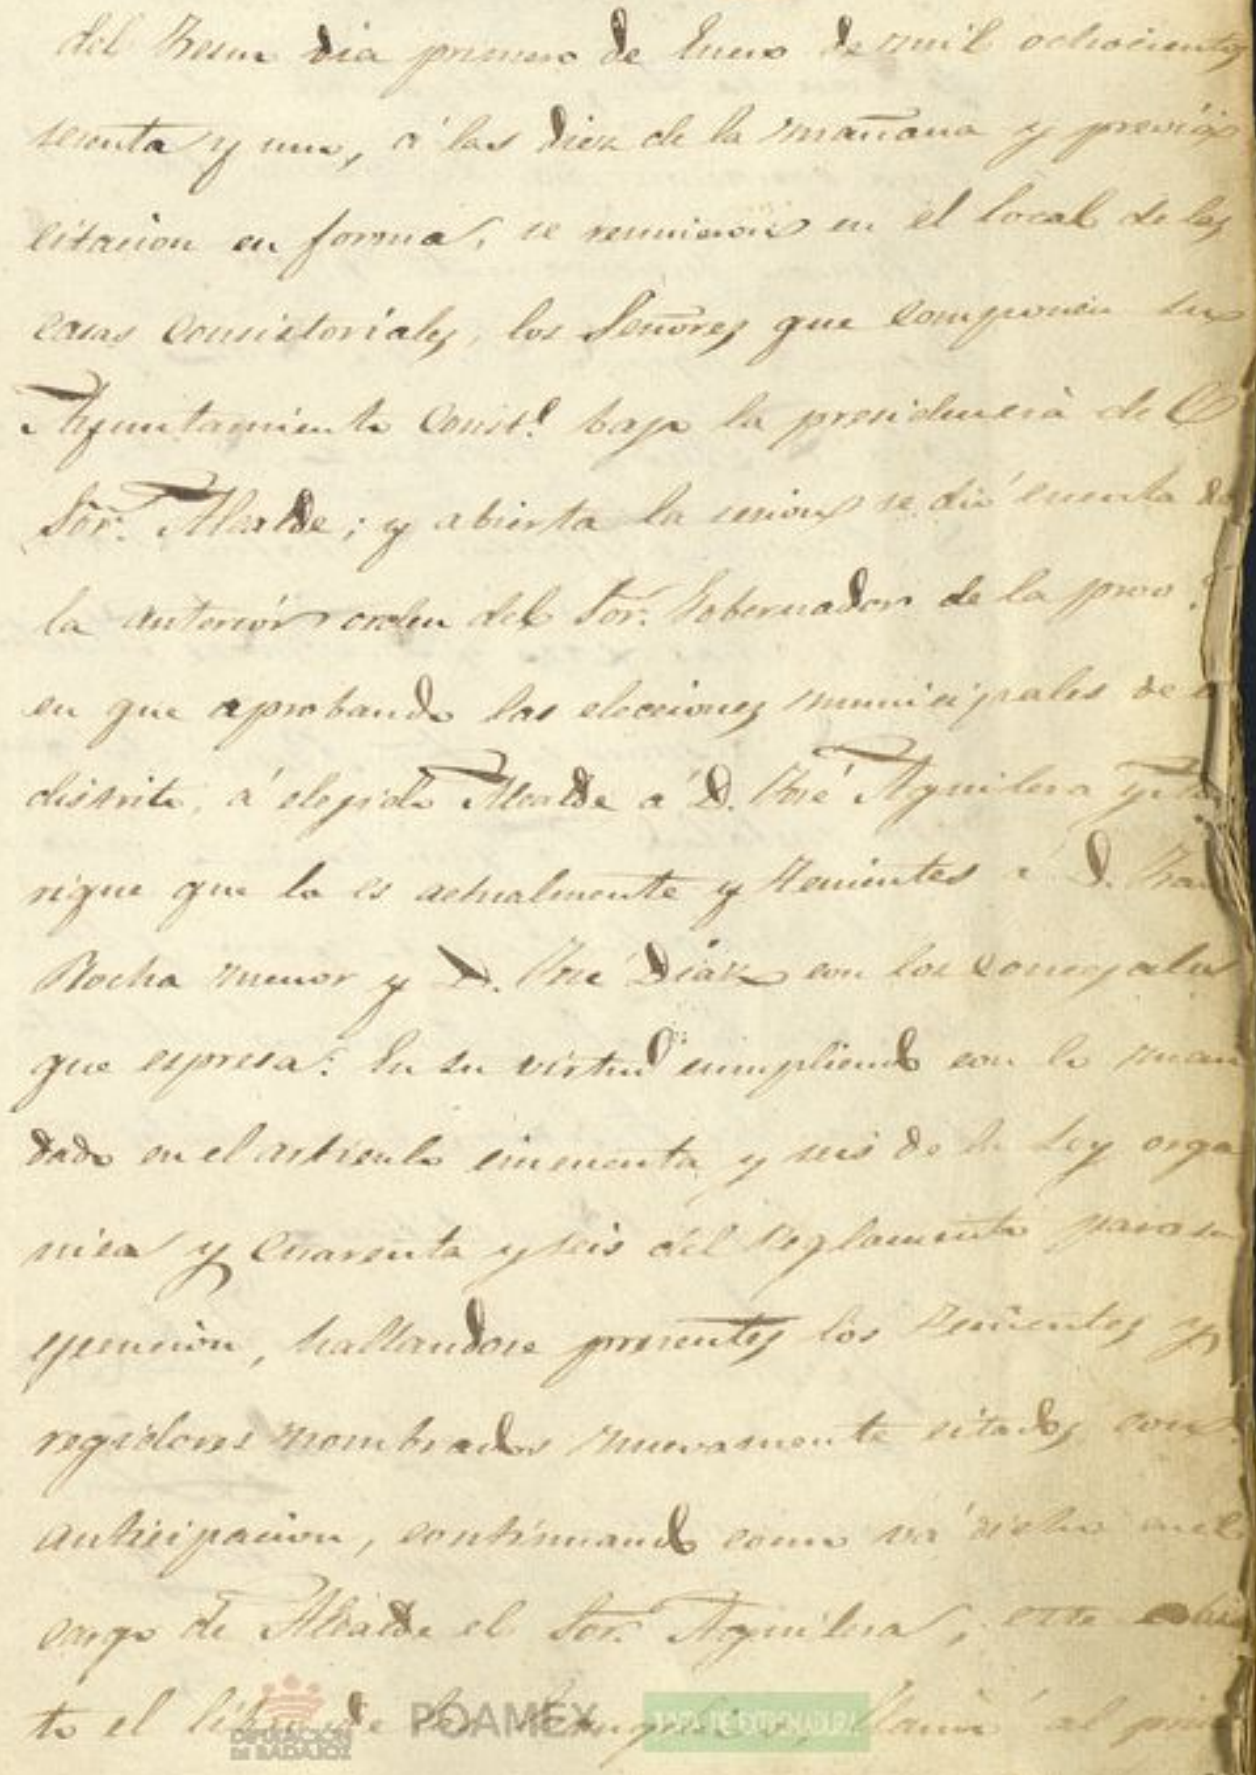 del Fresno dia primero de Enero de mil ochocientos
sesenta y uno, á las diez de la mañana y previa
citacion en forma, se reunieron en el local de las
casas consistoriales, los Señores que componen su
Ayuntamiento Const.l bajo la presidencia del
Sor. Alcalde; y abierta la sesion se dió cuenta de
la anterior orden del Sor. Gobernador de la prov.
en que aprobando las elecciones municipales de
distrito, á elegido Alcalde á D. José Aguilera y
rique que lo es actualmente y Tenientes á D. Fran
Rocha menor y D. José Diaz con los concejales
que espresa: En su virtud cumpliendo con lo man
dado en el articulo cincuenta y seis de la Ley orga
nica y cuarenta y seis del Reglamento para su
ejecucion, hallandose presentes los Tenientes y
regidores nombrados nuevamente citados con
anticipacion, continuando como vá dicho en el
cargo de Alcalde el Sor. Aguilera, este
to el libro de los llamó al prim
DIPUTACIÓN DE BADAJOZ
POAMEX
JUNTA DE EXTREMADURA